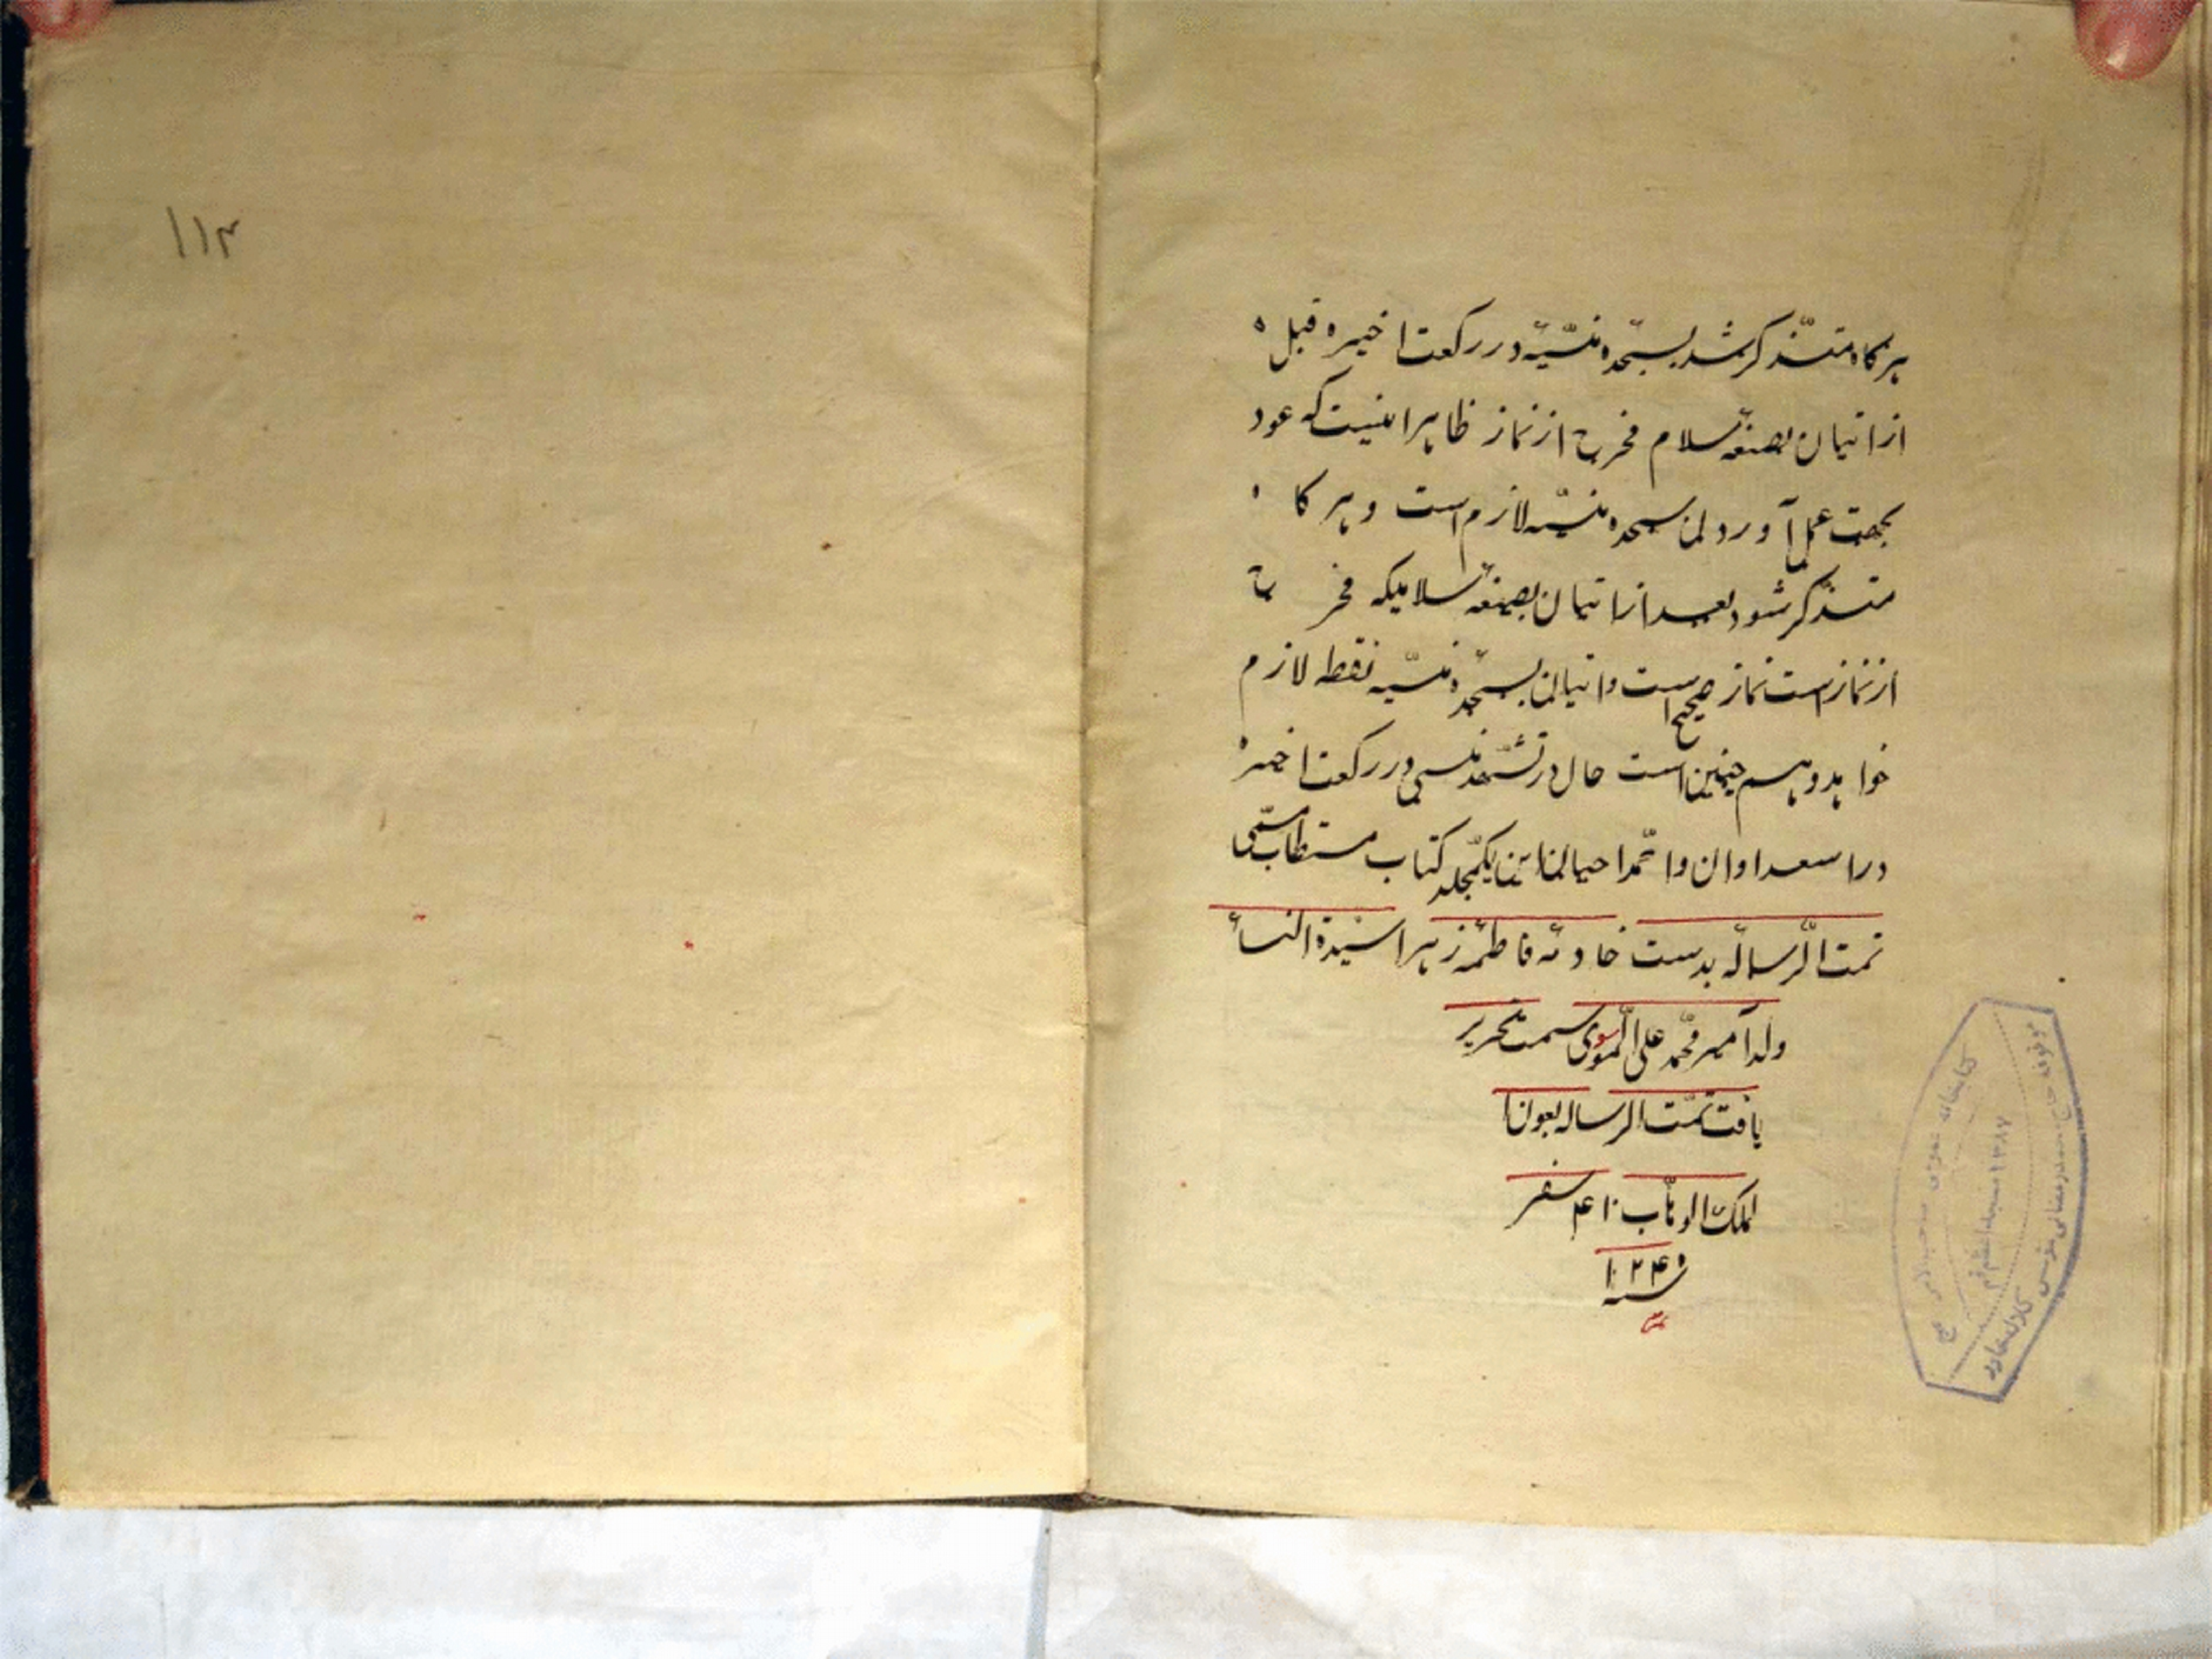 هرکاه متذکر شد بسجدهٔ منسیّه در رکعت اخیره قبل
از اتیان بصیغهٔ سلام مخرج از نماز ظاهر اینست که عود
بجهت عمل آوردن سجده منسیّه لازم است و هر کاه
متذکر شود بعد از اتیان بصیغهٔ سلامیکه مخرج
از نماز است نماز صحیح است و اتیان بسجدهٔ منسیّه فقط لازم
خواهد و هم چنین است حال در تشهد منسی در رکعت اخیره
در اسعد اوان و احیان کتاب مستطاب مسمّی
تمت الرسالة بدست خادمه فاطمه زهرا سیّدة النساء
ولد آمیر محمّد علی الموسوی سمت تحریر
یافت تمّت الرساله بعون
الملک الوهاب صفر
سنه ۱۲۴۰
۱۱۳
کتابخانه عمومی
۱۳۸۷
کلاله خاور